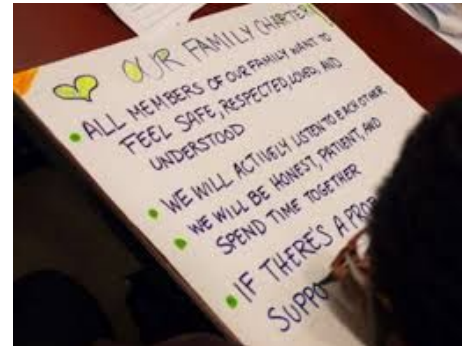 OUR FAMILY CHARTER!
• ALL MEMBERS OF OUR FAMILY WANT TO
FEEL SAFE, RESPECTED, LOVED, AND
UNDERSTOOD
• WE WILL ACTIVELY LISTEN TO EACH OTHER
• WE WILL BE HONEST, PATIENT, AND
SPEND TIME TOGETHER
• IF THERE'S A PROB
SUPPO